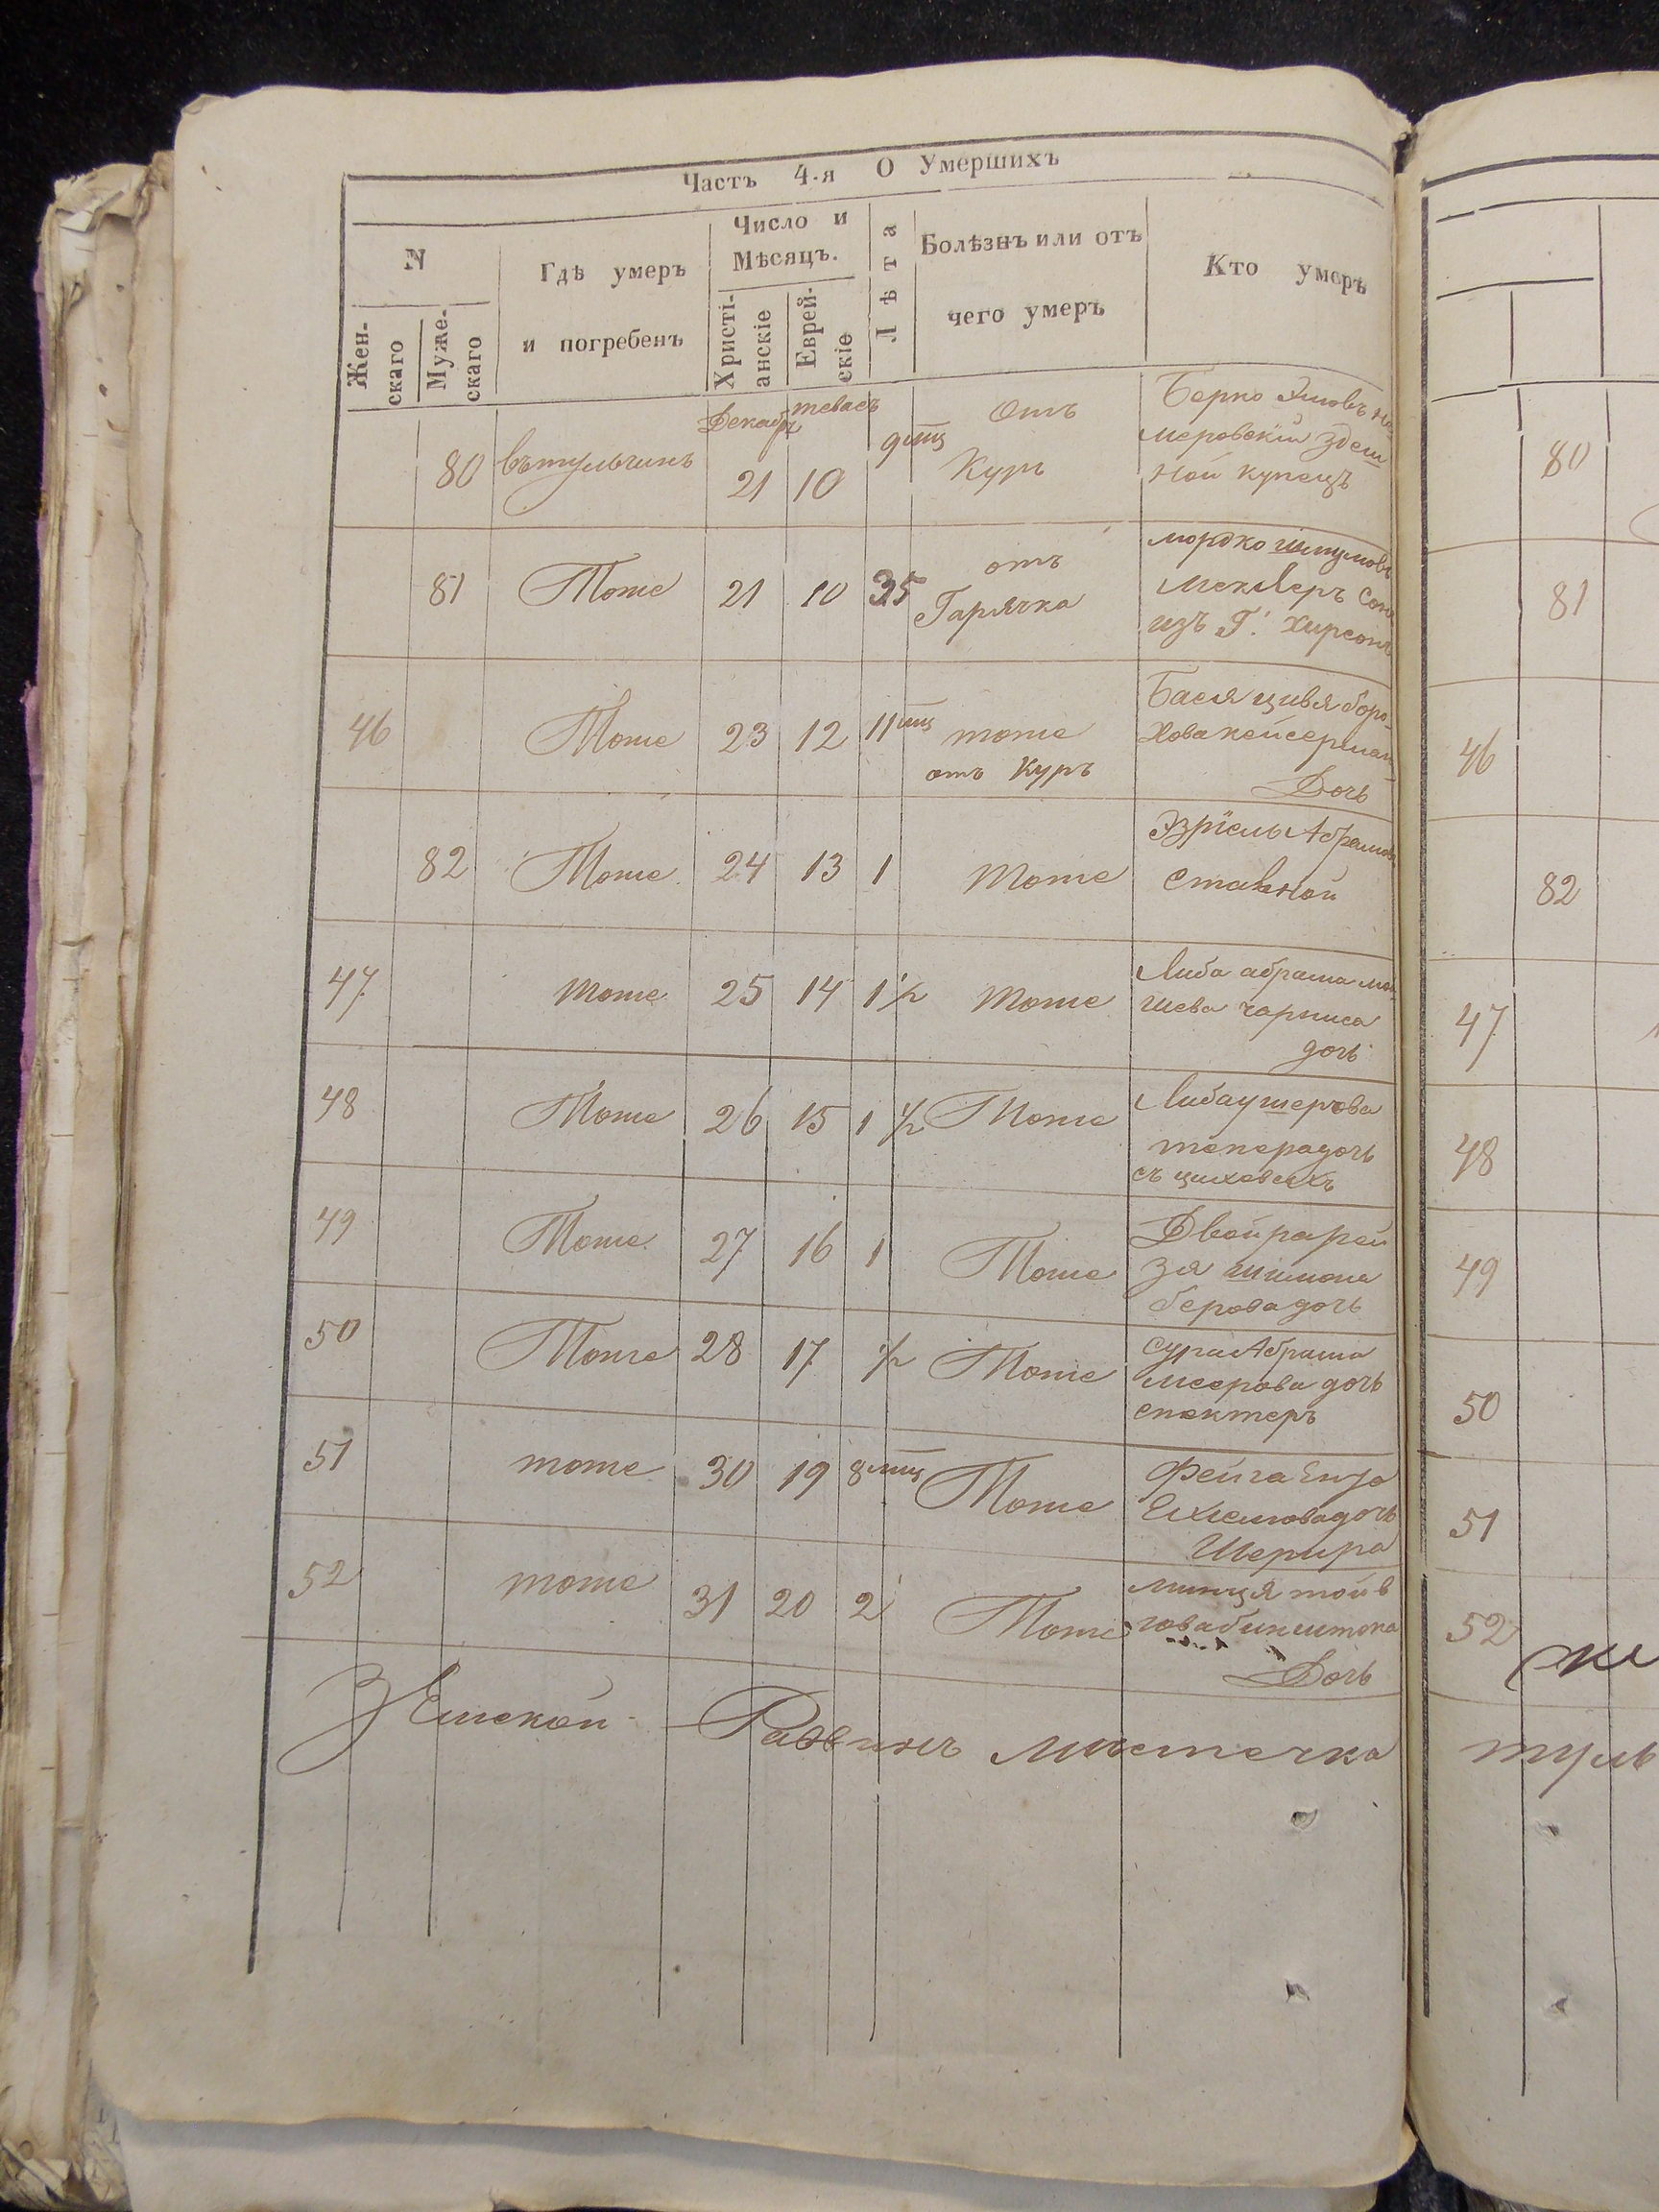 Часть 4-я О Умершихъ
N
Жен-
скаго
Муже-
скаго
Гдѣ умеръ
и погребенъ
Число и
Мѣсяцъ.
Христі-
анскіе
Еврей-
скіе
Лѣта
Болѣзнъ или отъ
чего умеръ
Кто умеръ
Декабр тевасъ
80 вътульчинъ 21 10 9 мц Отъ Куръ
Берко
меровскій здеш
ной купецъ
81 Тоже 21 10 35 отъ Гарячка
мордко шмулов
Меклеръ
изъ Г. Хирсонъ
46 Тоже 23 12 11 мц тоже
отъ Куръ
Бася цивя боро-
хова кейсерман
Дочь
82 Тоже 24 13 1 Тоже
Эзріель Абрамов
Ставной
47 тоже 25 14 1 1/2 Тоже
Либа абрама мош
шева чарниса
дочь
48 Тоже 26 15 1 1/2 Тоже
Либа ушерова
токера дочь
съ
49 Тоже 27 16 1 Тоже
Двойра рей
зя шимона
берова дочь
50 Тоже 28 17 1/2 Тоже
Сура Абрама
меерова дочь
спектеръ
51 тоже 30 19 8 мц Тоже
Фейга Енто
Ехиелова дочь
Шерира
52 тоже 31 20 2 Тоже
минця той в
гова бинштока
Дочь
Раввинъ мистечка
80
81
46
82
47
48
49
50
51
52
туль